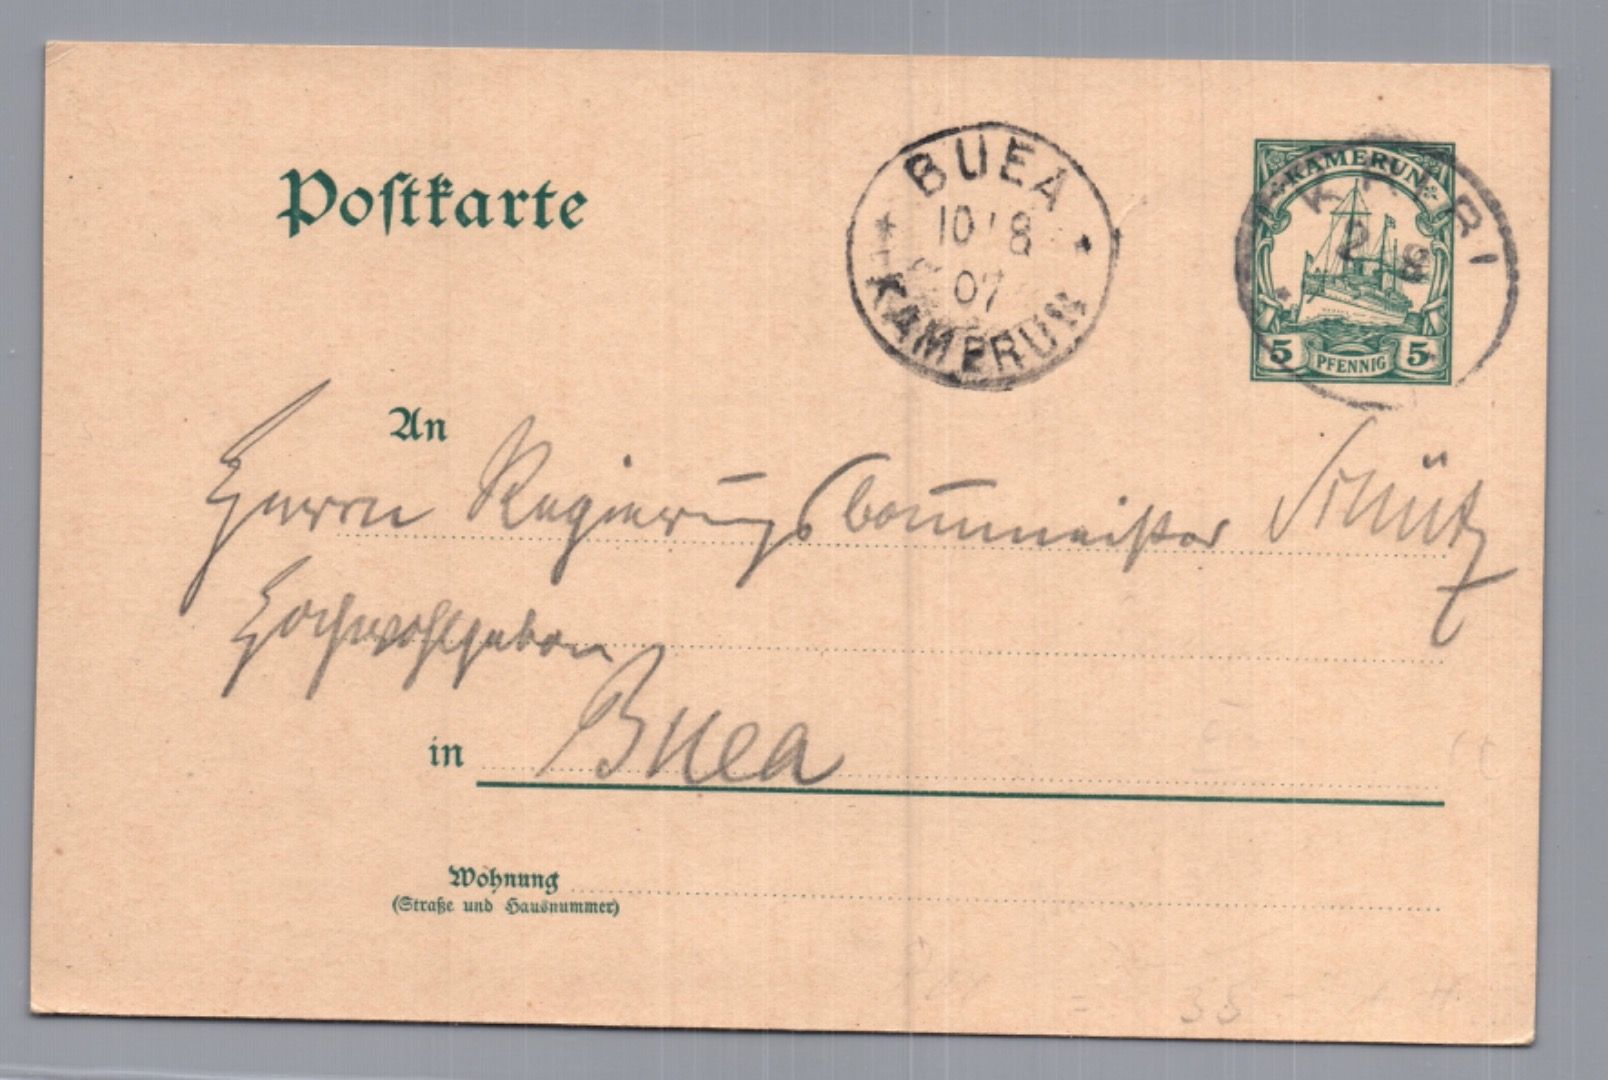 Postkarte
BUEA
10 8
07
KAMERUN
KAMERUN
KRIBI
2 8
5 PFENNIG 5
An
Herrn Regierungsbaumeister Schütz
Hochwohlgeboren
in Buea
Wohnung
(Straße und Hausnummer)
35